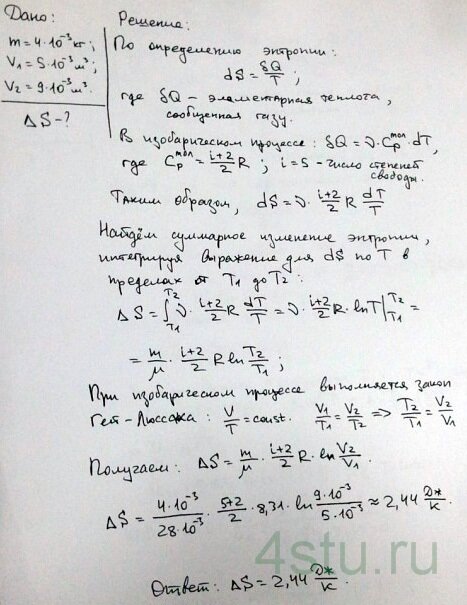 Дано:
m = 4·10⁻³ кг;
V₁ = 5·10⁻³ м³;
V₂ = 9·10⁻³ м³.
ΔS - ?
Решение:
По определению энтропии:
dS = δQ/T ;
где δQ - элементарная теплота,
сообщенная газу.
В изобарическом процессе: δQ = ν·Cₚᵐᵒˡ·dT,
где Cₚᵐᵒˡ = (i+2)/2 R ; i = 5 - число степеней
свободы.
Таким образом, dS = ν· (i+2)/2 R dT/T
Найдём суммарное изменение энтропии,
интегрируя выражение для dS по T в
пределах от T₁ до T₂ :
ΔS = ∫_{T₁}^{T₂} ν· (i+2)/2 R dT/T = ν· (i+2)/2 R· lnT|_{T₁}^{T₂} =
= m/μ · (i+2)/2 R ln T₂/T₁ ;
При изобарическом процессе выполняется закон
Гей-Люссака : V/T = const. V₁/T₁ = V₂/T₂ => T₂/T₁ = V₂/V₁
Получаем: ΔS = m/μ · (i+2)/2 R· ln V₂/V₁ .
ΔS = 4·10⁻³/28·10⁻³ · (5+2)/2 · 8,31· ln 9·10⁻³/5·10⁻³ ≈ 2,44 Дж/К .
4stu.ru
Ответ: ΔS = 2,44 Дж/К .